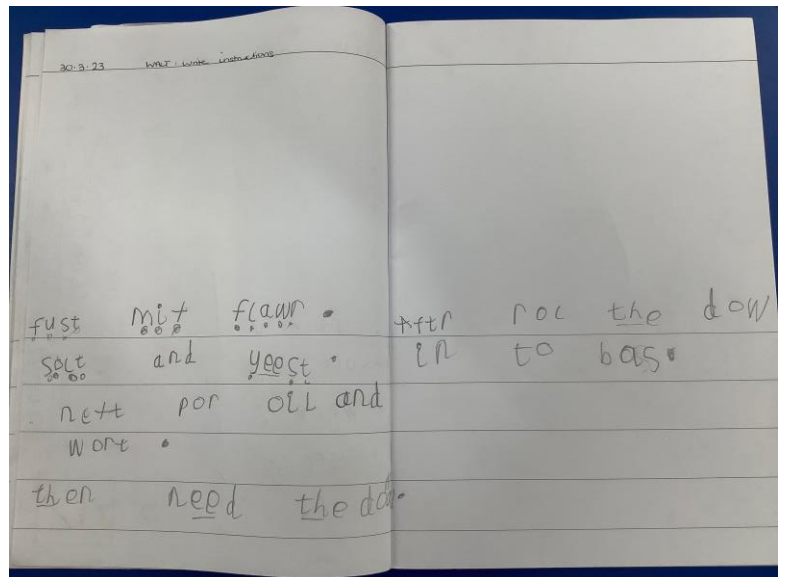 30.3.23 WALT: Write instructions
fust mix flawr.
solt and yeest.
next por oil and
wort.
then need the doh.
Aftr rol the dow
in to bas.